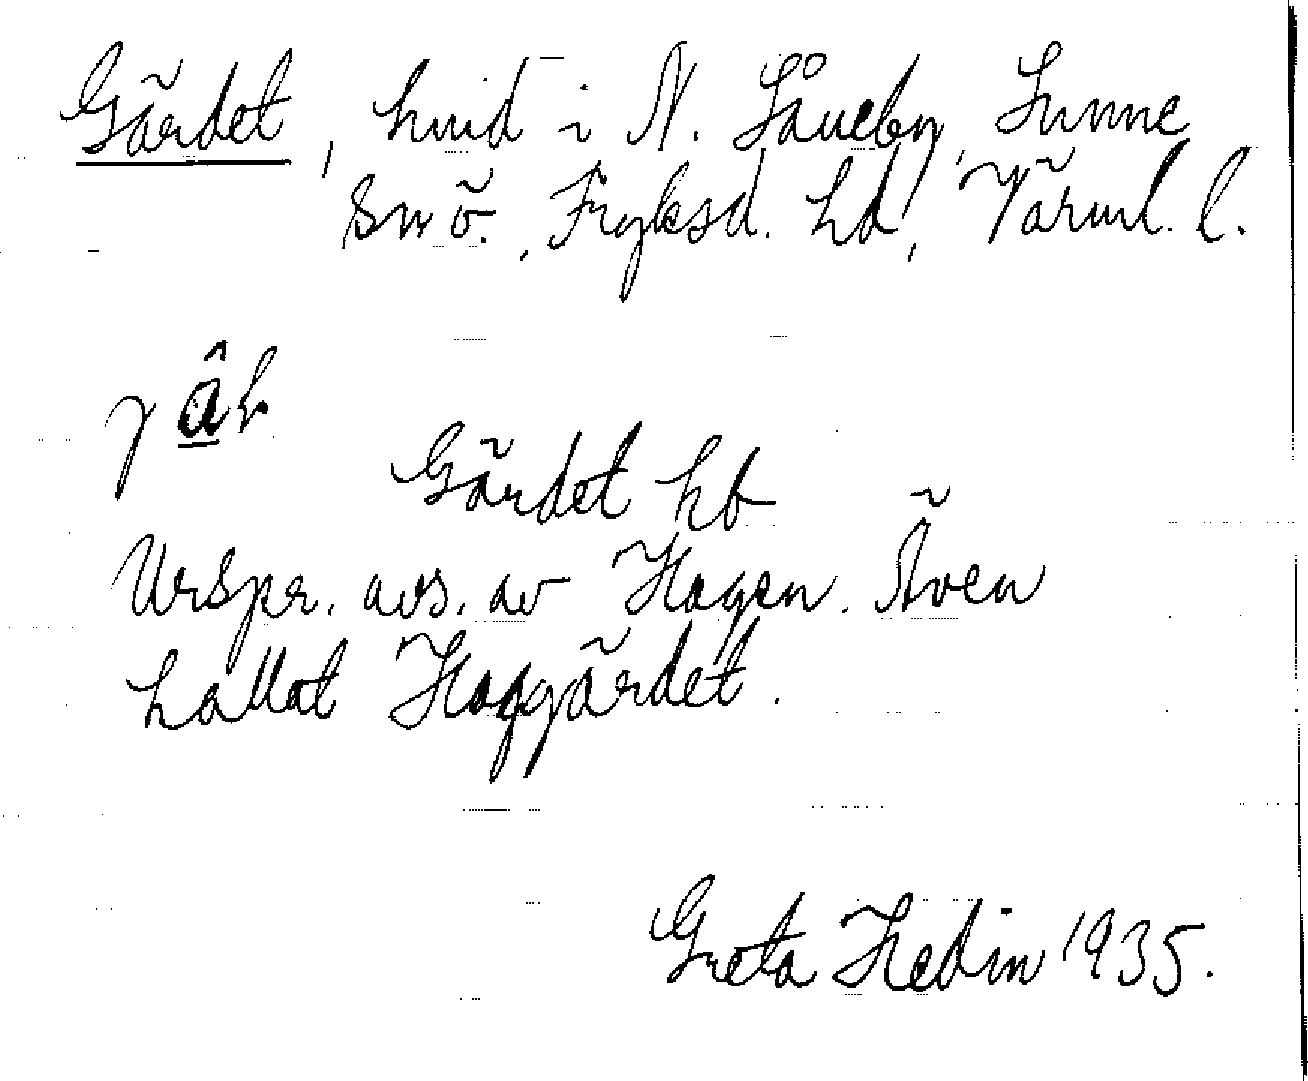 Gärdet, hmd i N. Såneby, Sunne
sn ö., Fryksd. hd, Värml. l.
Gärdet hb
Urspr. avs. av Hagen. Även
kallat Haggärdet.
Greta Hedin 1935.